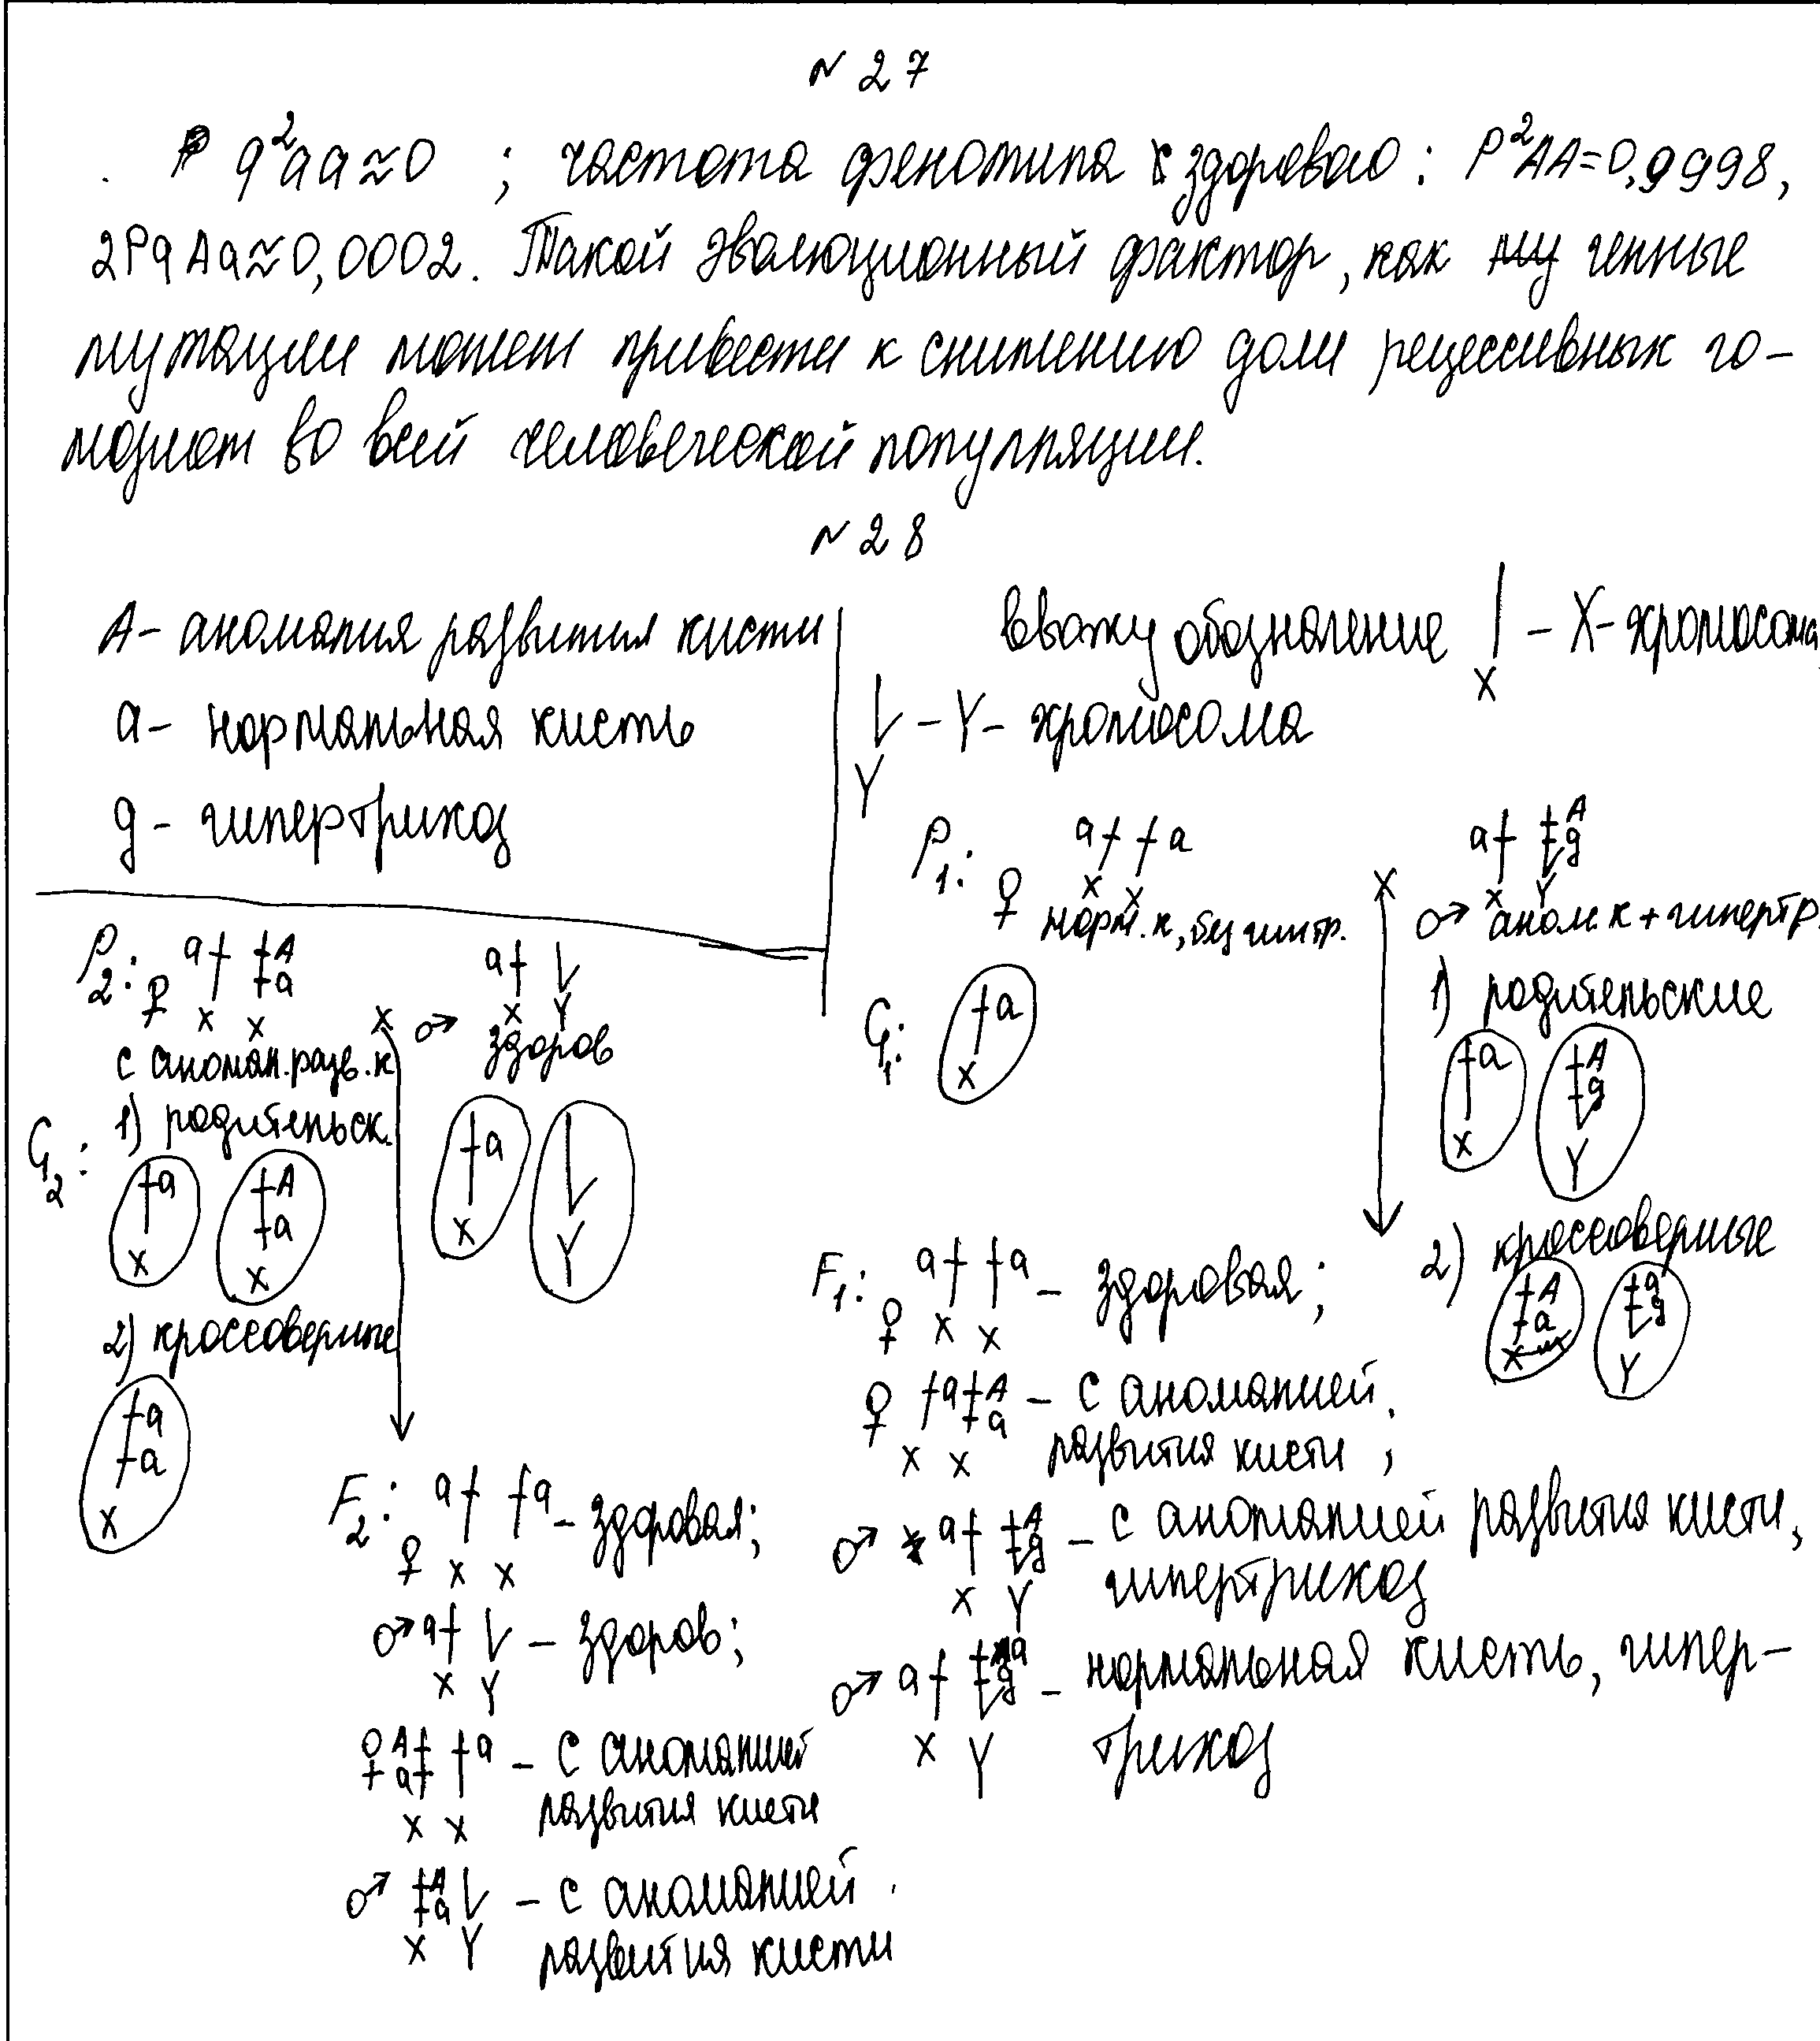 № 27
q²aa≈0 ; частота фенотипа здорового: P²AA=0,9998,
2PqAa≈0,0002. Такой эволюционный фактор, как генные
мутации может привести к снижению доли рецессивных го-
мозигот во всей человеческой популляции.
№ 28
A- аномалия развития кисти
a- нормальная кисть
g- гипертрихоз
ввожу обозначение | - X-хромосома,
X
- Y- хромосома
Y
P₁: ♀ a a
X X
норм. к, без гиптр.
X
♂ a A g
X Y
аном. к + гипертр.
G₁: a
X
1) родительские
a
X
A
g
Y
2) кроссоверные
A
a
X
a
g
Y
F₁: ♀ a a - здоровая;
X X
♀ a A a - с аномалией
X X развития кисти;
♂ a A g - с аномалией развития кисти,
X Y гипертрихоз
♂ a a g - нормальная кисть, гипер-
X Y трихоз
P₂: ♀ a A a
X X
с аномал. разв. к
X
♂ a
X Y
здоров
G₂: 1) родительск.
a
X
A
a
X
a
X
Y
2) кроссоверные
a
a
X
F₂: ♀ a a - здоровая;
X X
♂ a - здоров;
X Y
♀ A a a - с аномалией
X X развития кисти
♂ A a - с аномалией
X Y развития кисти